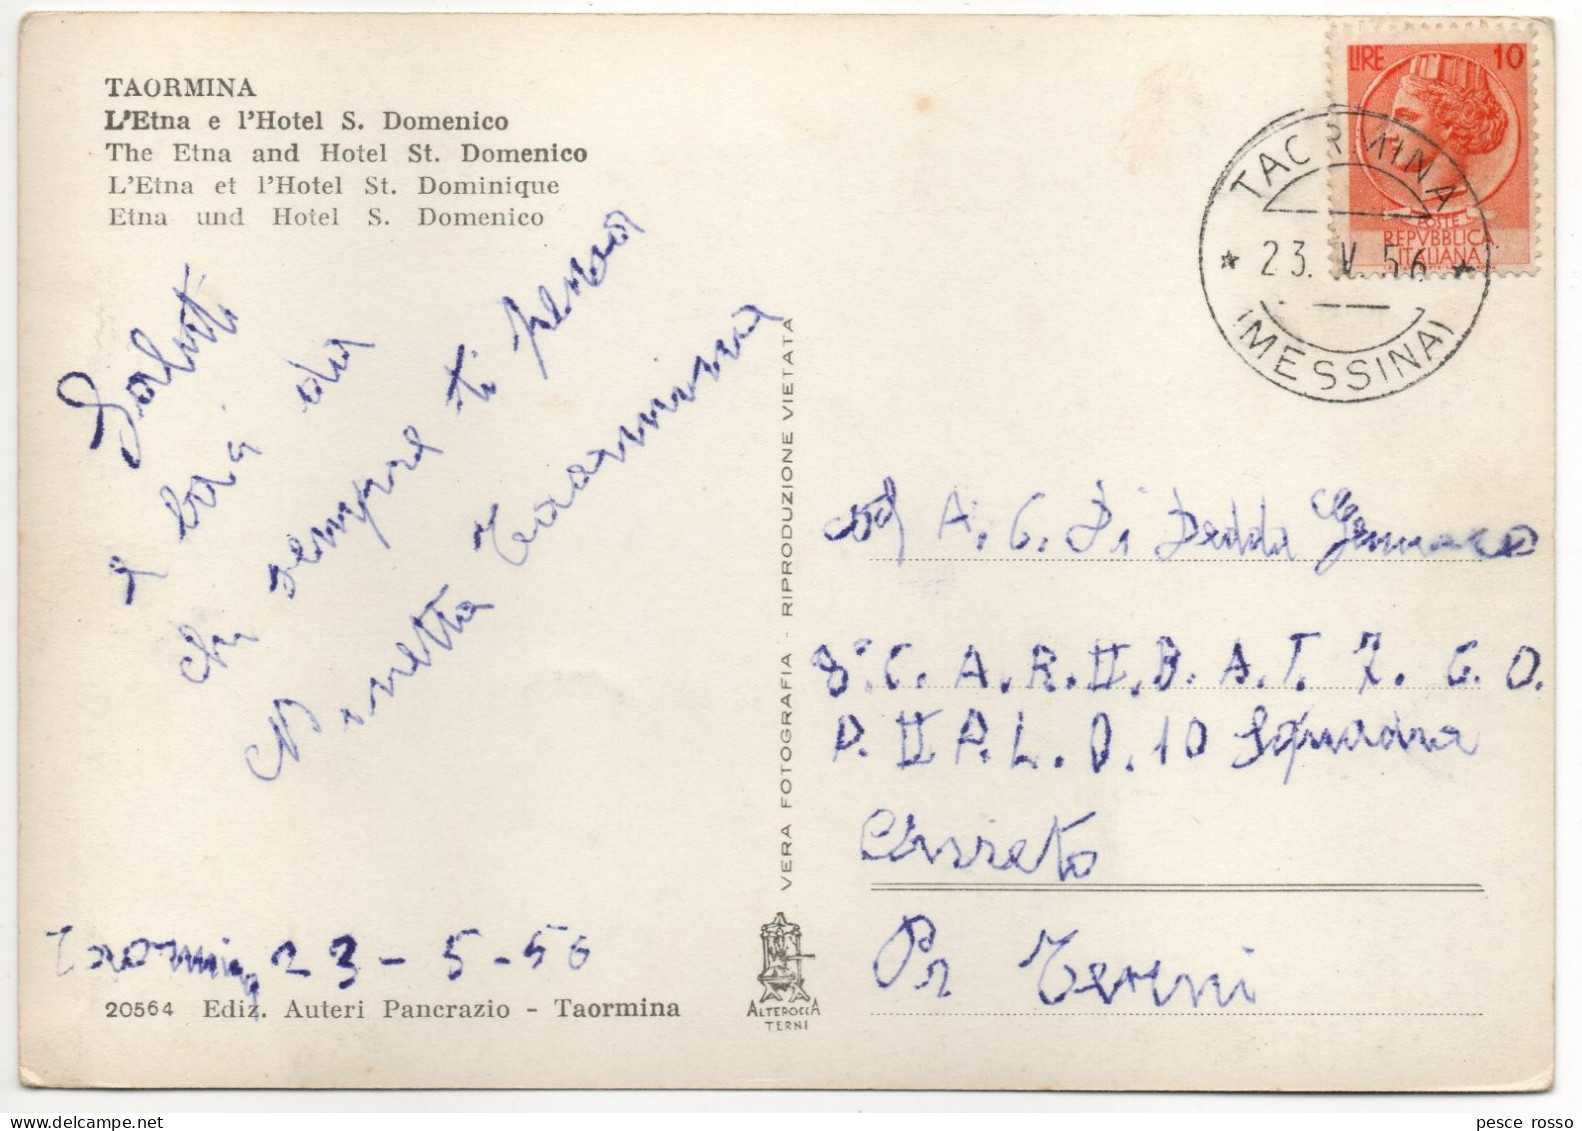 TAORMINA
L'Etna e l'Hotel S. Domenico
The Etna and Hotel St. Domenico
L'Etna et l'Hotel St. Dominique
Etna und Hotel S. Domenico
Saluti
e baci da
chi sempre ti pensa
Ninetta Taormina
Taormina 23-5-56
20564 Ediz. Auteri Pancrazio - Taormina
VERA FOTOGRAFIA - RIPRODUZIONE VIETATA
ALTEROCCA
TERNI
LIRE 10
POSTE
REPVBBLICA
ITALIANA
TAORMINA
* 23. V. 56 *
(MESSINA)
A. C. Di Dedda Gennaro
8° C. A. R. II. B. A. T. 7. C. O.
P. II P. L. O. 10 Squadra
Pr Terni
pesce rosso